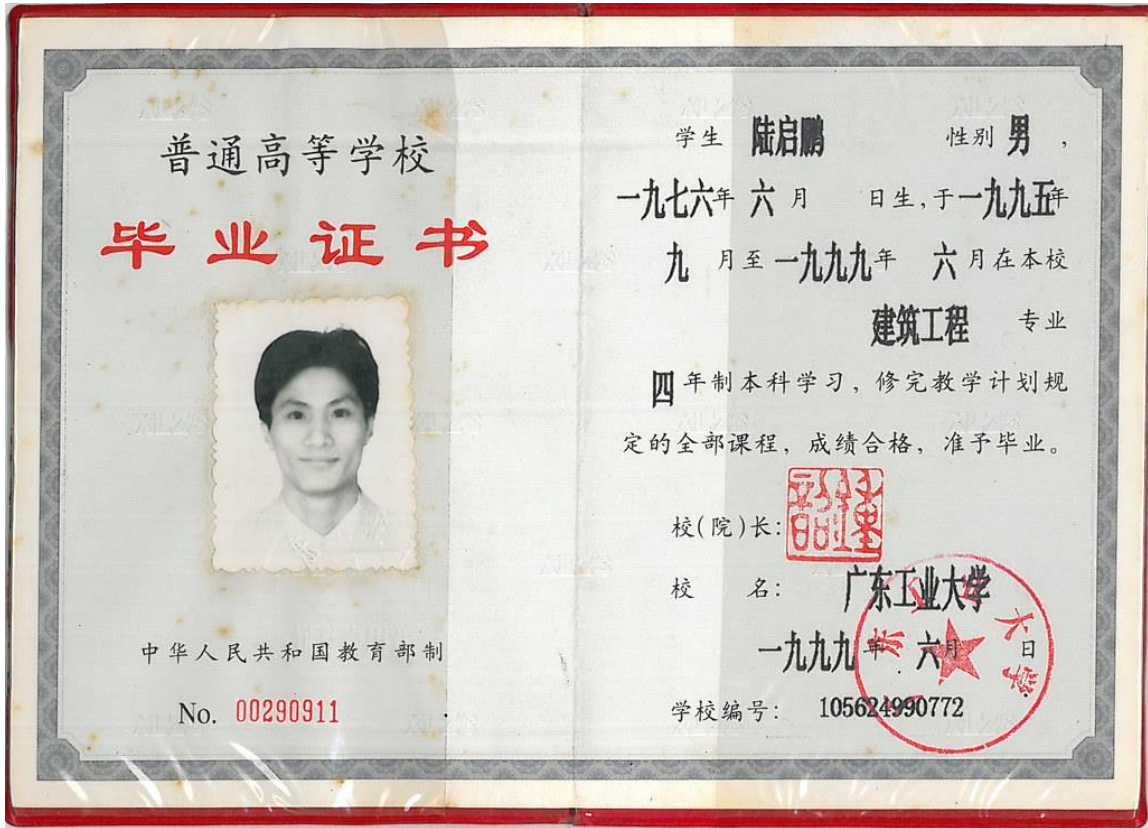 普通高等学校
毕业证书
中华人民共和国教育部制
No. 00290911
学生 陆启鹏 性别 男 ,
一九七六年 六 月 日生, 于一九九五年
九 月至一九九九年 六 月在本校
建筑工程 专业
四 年制本科学习, 修完教学计划规
定的全部课程, 成绩合格, 准予毕业。
校(院)长:
校 名: 广东工业大学
一九九九年 六月 日
学校编号: 105624990772